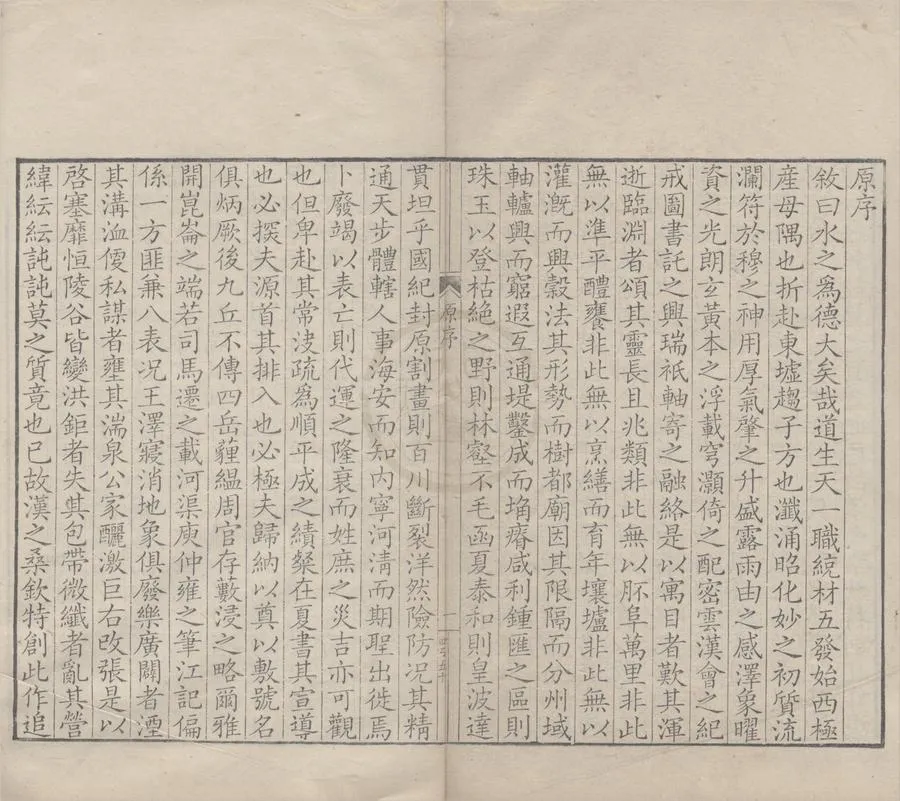 原序
敘曰水之為德大矣哉道生天一職統材五發始西極
産母隅也折赴東墟趨子方也瀸涌昭化妙之初質流
瀾符於穆之神用厚氣肇之升盛露雨由之感澤象曜
資之光朗玄黃本之浮載穹灝倚之配密雲漢會之紀
戒圖書託之興瑞祇軸寄之融絡是以寓目者歎其渾
逝臨淵者頌其靈長且兆類非此無以胚阜萬里非此
無以準平醴饔非此無以烹繕而育年壤墟非此無以
灌漑而興穀法其形勢而樹都廟因其限隔而分州域
軸轤興而竆遐互通堤鑿成而埆瘠咸利鍾匯之區則
珠玉以登枯絶之野則林壑不毛函夏泰和則皇波達
原序
一
貫坦乎國紀封原割畫則百川斷裂洋然險防况其精
通天步體轄人事海安而知内寧河淸而期聖出徙焉
卜廢竭以表亡則代運之隆衰而姓庶之災吉亦可觀
也但卑赴其常決疏為順平成之績粲在夏書其宣導
也必探夫源首其排入也必極夫歸納以奠以敷號名
俱炳厥後九丘不傳四岳蕹緼周官存藪浸之略爾雅
開崑崙之端若司馬遷之載河渠庾仲雍之筆江記偏
係一方匪兼八表况王澤寢消地象俱廢樂廣闢者湮
其溝洫便私謀者壅其湍泉公家釃激巨右改張是以
啓塞靡恒陵谷皆變洪鉅者失其包帶微纖者亂其營
緯紜紜訰訰莫之質竟也已故漢之桑欽特創此作追